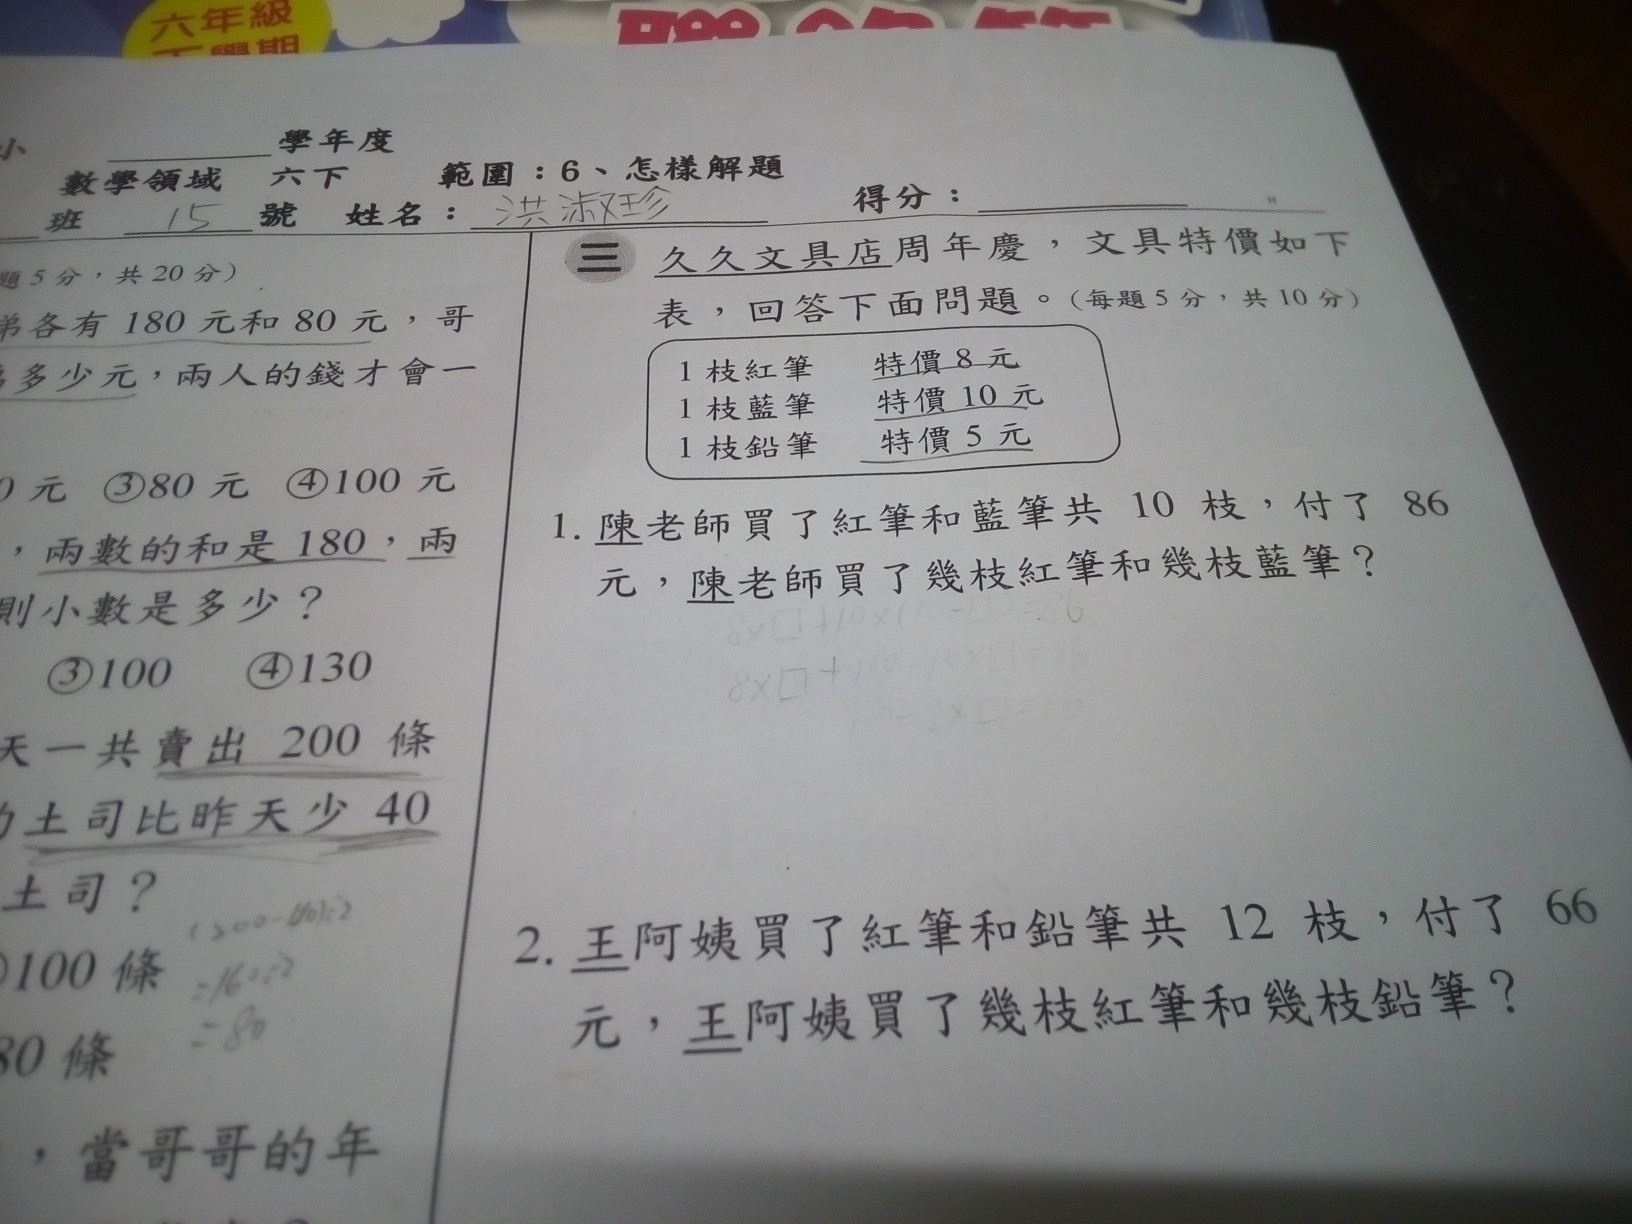 六年級
下學期
小 學年度
數學領域 六下 範圍：6、怎樣解題
班 15 號 姓名： 洪淑珍 得分：
題 5 分，共 20 分）
弟各有 180 元和 80 元，哥
多少元，兩人的錢才會一
0 元 ③80 元 ④100 元
，兩數的和是 180，兩
則小數是多少？
③100 ④130
天一共賣出 200 條
土司比昨天少 40
土司？
(200-40)÷2
100 條
=160÷2
=80
80 條
，當哥哥的年
三 久久文具店周年慶，文具特價如下
表，回答下面問題。（每題 5 分，共 10 分）
1 枝紅筆 特價 8 元
1 枝藍筆 特價 10 元
1 枝鉛筆 特價 5 元
1. 陳老師買了紅筆和藍筆共 10 枝，付了 86
元，陳老師買了幾枝紅筆和幾枝藍筆？
2. 王阿姨買了紅筆和鉛筆共 12 枝，付了 66
元，王阿姨買了幾枝紅筆和幾枝鉛筆？